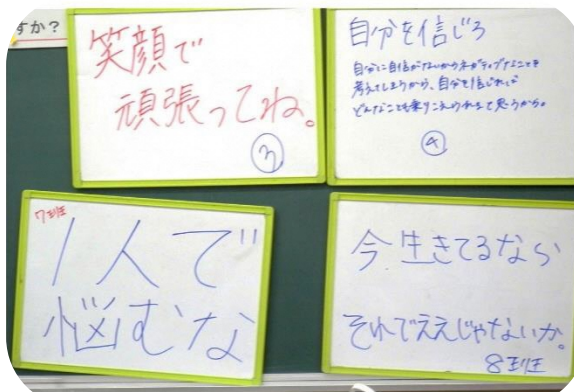 すか?
笑顔で
頑張ってね。
③
自分を信じろ
自分に自信がないからネガティブなことを
考えてしまうから、自分を信じれば
どんなことも乗りこえられると思うから。
④
7班
1人で
悩むな
今生きてるなら
それでええじゃないか。
8班